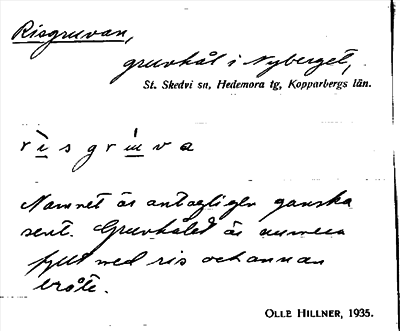 Risgruvan,
gruvhål i Nyberget,
St. Skedvi sn, Hedemora tg, Kopparbergs län.
rìsgrùva
Namnet är antagligen ganska
sent. Gruvhålet är numera
fyllt med ris och annan
bråte.
OLLE HILLNER, 1935.